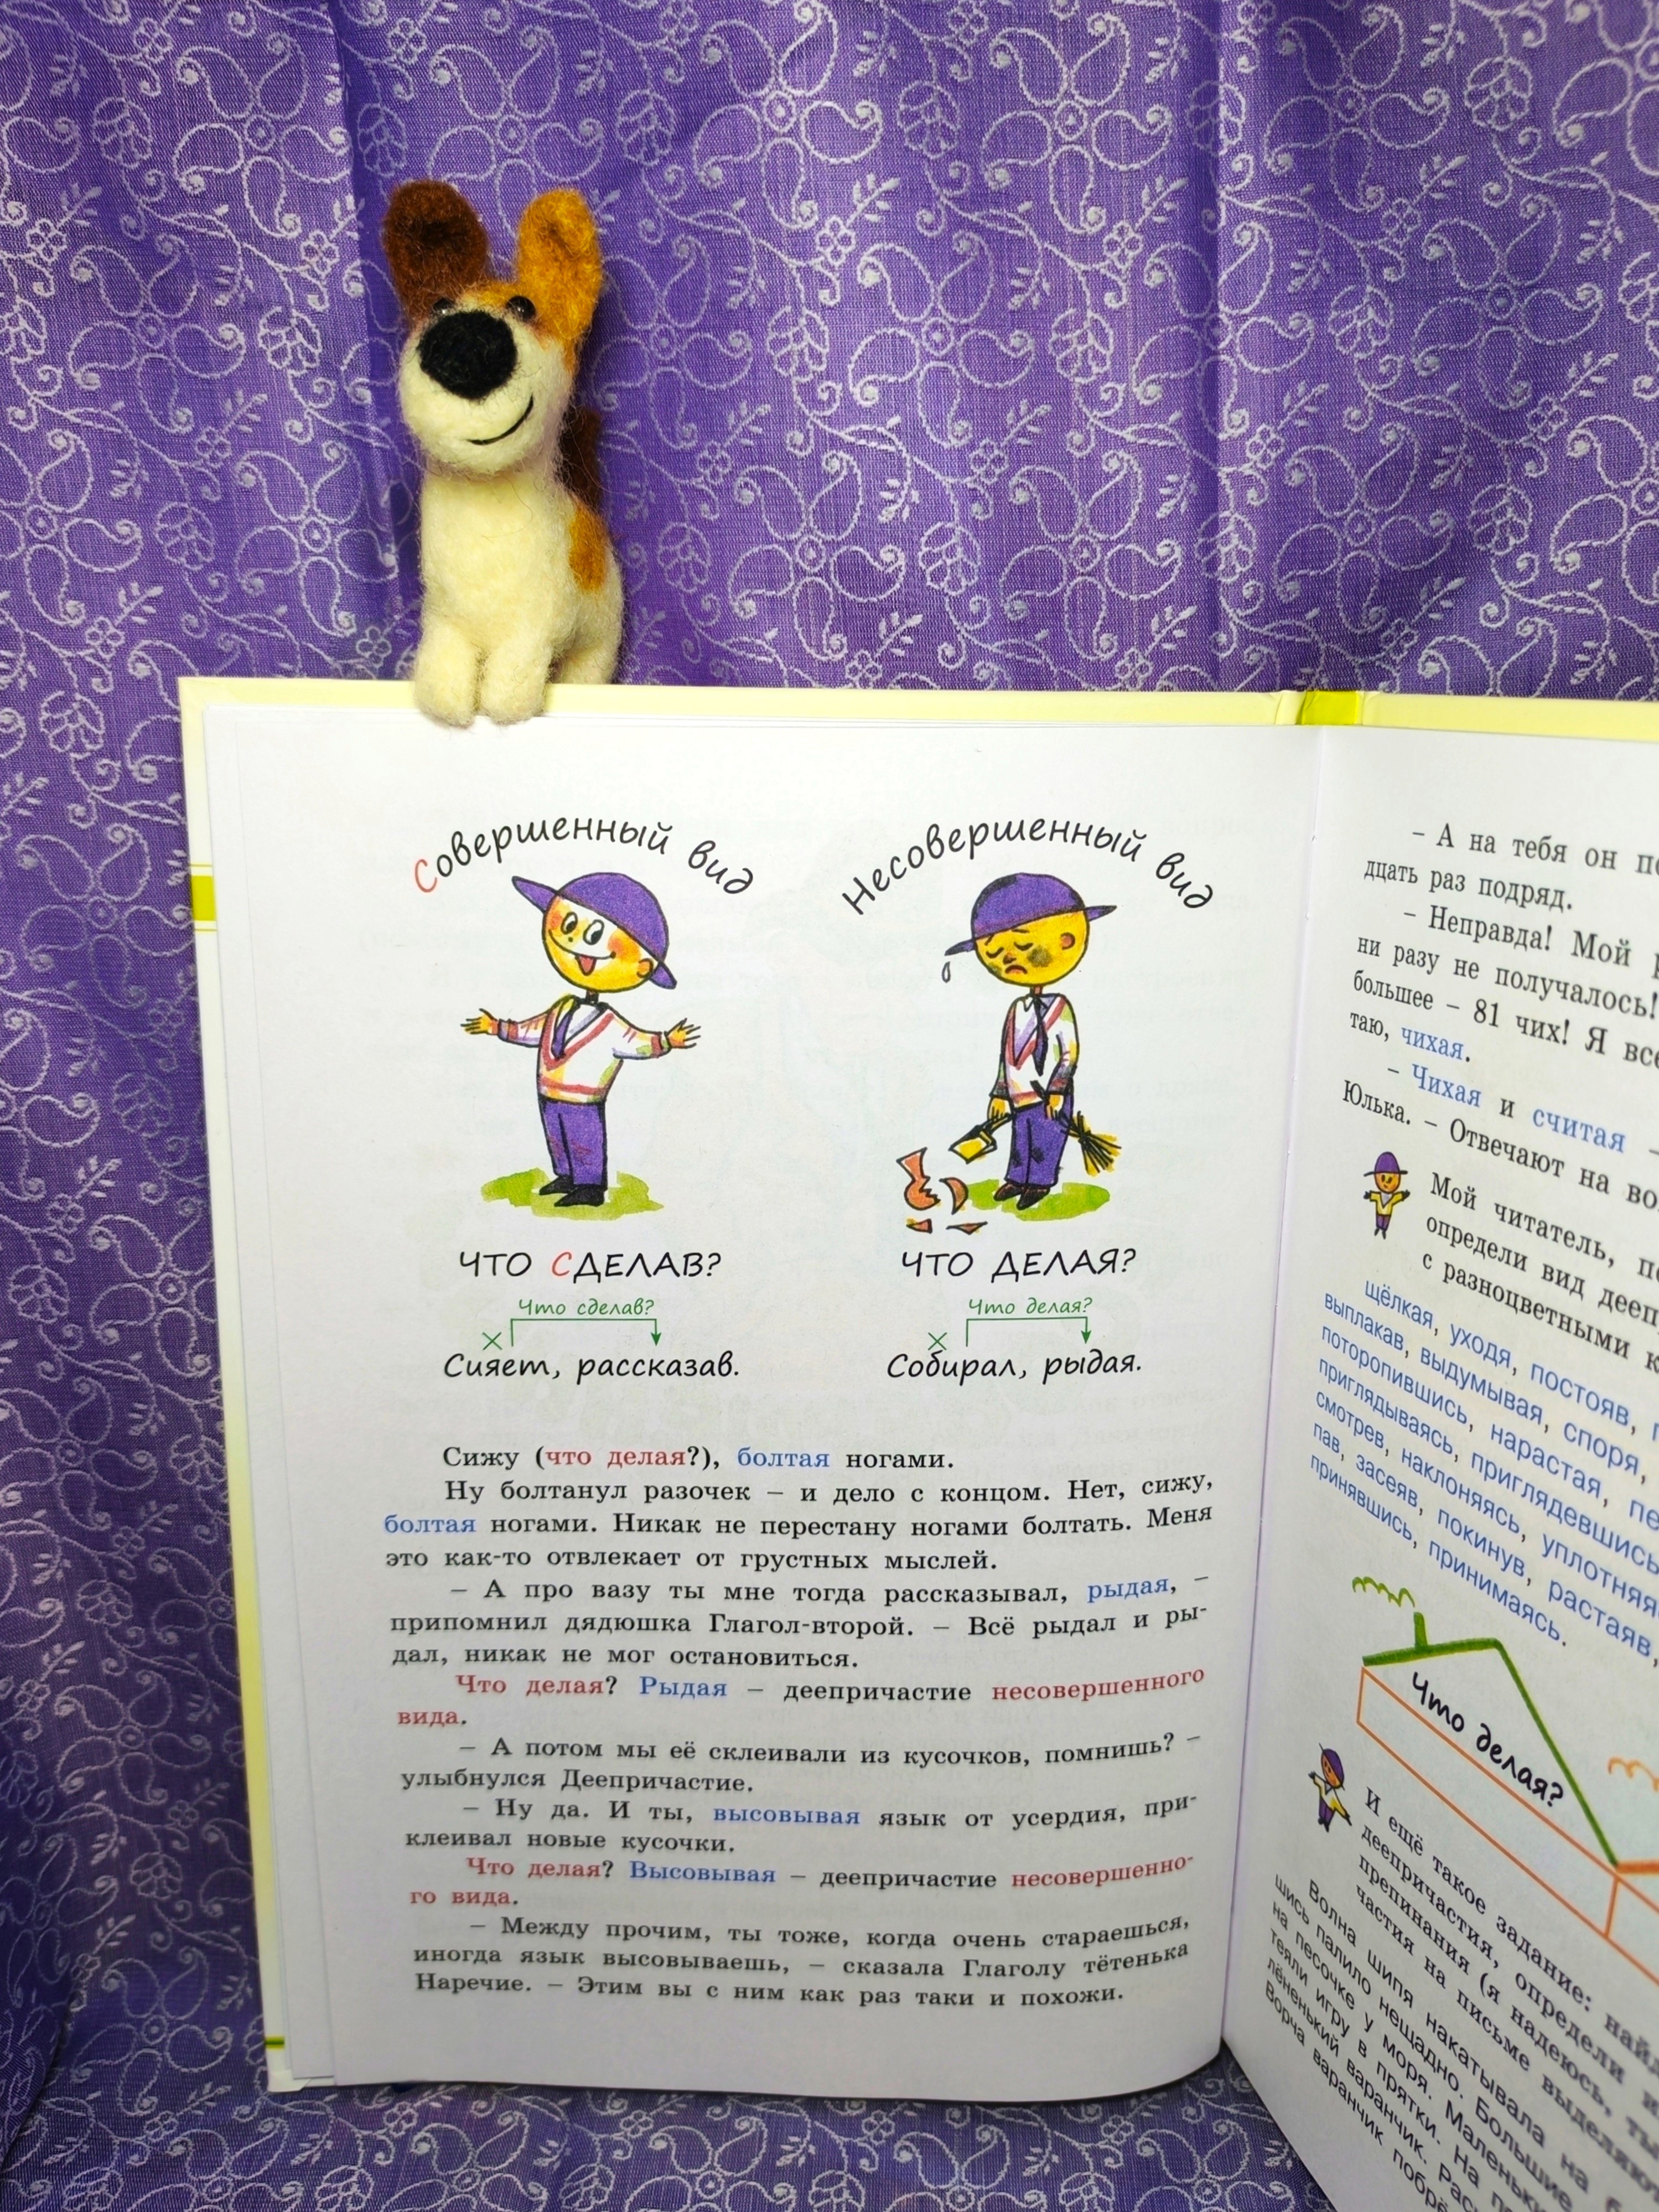 Совершенный вид
Несовершенный вид
ЧТО СДЕЛАВ?
ЧТО ДЕЛАЯ?
Что сделав?
Что делая?
Сияет, рассказав.
Собирал, рыдая.
Сижу (что делая?), болтая ногами.
Ну болтанул разочек – и дело с концом. Нет, сижу,
болтая ногами. Никак не перестану ногами болтать. Меня
это как-то отвлекает от грустных мыслей.
– А про вазу ты мне тогда рассказывал, рыдая, –
припомнил дядюшка Глагол-второй. – Всё рыдал и ры-
дал, никак не мог остановиться.
Что делая? Рыдая – деепричастие несовершенного
вида.
– А потом мы её склеивали из кусочков, помнишь? –
улыбнулся Деепричастие.
– Ну да. И ты, высовывая язык от усердия, при-
клеивал новые кусочки.
Что делая? Высовывая – деепричастие несовершенно-
го вида.
– Между прочим, ты тоже, когда очень стараешься,
иногда язык высовываешь, – сказала Глаголу тётенька
Наречие. – Этим вы с ним как раз таки и похожи.
– А на тебя он
дцать раз подряд.
– Неправда! Мой
ни разу не получалось!
большее – 81 чих! Я
таю, чихая.
– Чихая и считая –
Юлька. – Отвечают на
Мой читатель,
определи вид
с разноцветными
щёлкая, уходя, постояв,
выплакав, выдумывая, споря,
поторопившись, нарастая,
приглядываясь, приглядевшись
смотрев, наклоняясь, уплотняя
пав, засеяв, покинув, растаяв,
принявшись, принимаясь.
Что делая?
И ещё такое задание:
деепричастия, определи
препинания (я надеюсь,
частия на письме выделяют
Волна шипя накатывала на
шись палило нещадно. Большие
на песочке у моря. Маленьки
теяли игру в прятки. На
лёненький варанчик.
Ворча варанчик